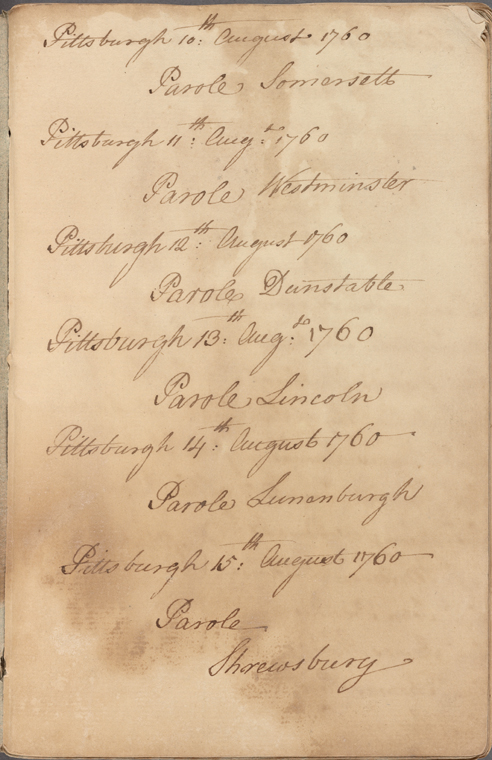 Pittsburgh 10:th August 1760
Parole Somersett
Pittsburgh 11:th Aug:st 1760
Parole Westminster
Pittsburgh 12:th August 1760
Parole Dunstable
Pittsburgh 13:th Aug:st 1760
Parole Lincoln
Pittsburgh 14:th August 1760
Parole Lunenburgh
Pittsburgh 15:th August 1760
Parole
Shrewsbury